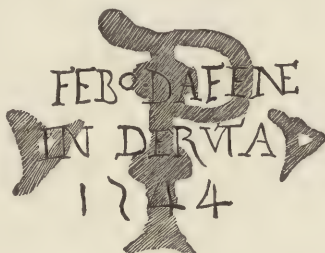 FEBº DAFENE
IN DERVTA
1744